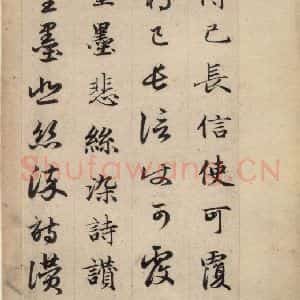 恃己長信使可覆
恃己長信使可覆
量墨悲絲染詩讚
量墨悲絲染詩讚
Shufawang.CN